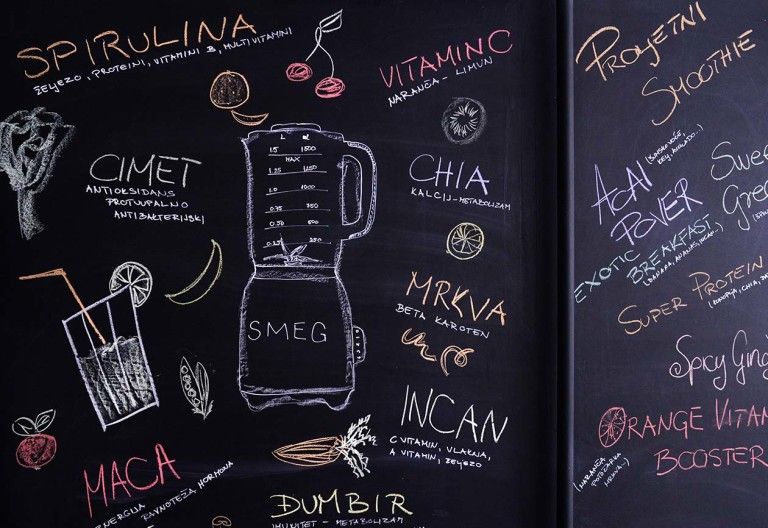 SPIRULINA
ŽELJEZO, PROTEINI, VITAMINI B, MULTIVITAMINI
VITAMIN C
NARANČA - LIMUN
CIMET
ANTIOKSIDANS
PROTUUPALNO
ANTIBAKTERIJSKI
CHIA
KALCIJ-METABOLIZAM
L ml
1.5 1500
MAX
1.25 1250
1.0 1000
0.75 750
0.50 500
0.25 250
SMEG
MRKVA
BETA KAROTEN
INCAN
C VITAMIN, VLAKNA,
A VITAMIN, ŽELJEZO
MACA
ENERGIJA
RAVNOTEŽA HORMONA
ĐUMBIR
IMUNITET - METABOLIZAM
PROLJETNI
SMOOTHIE
ACAI
POVER
EXOTIC
BREAKFAST
(BANANA, ANANAS, INCAN..)
SUPER PROTEIN
SPICY
ORANGE
BOOSTER
(NARANČA